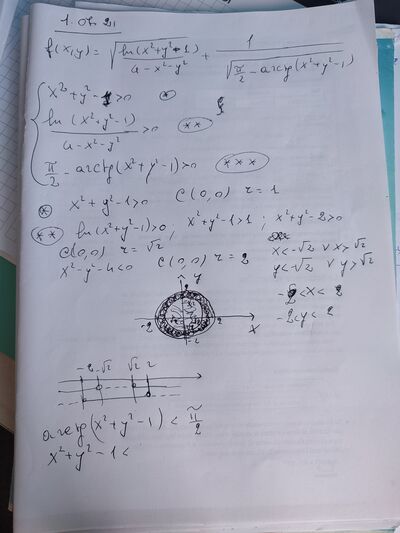 1.
f(x,y) = √(ln(x²+y²-1)/(4-x²-y²)) + 1/√(π/2 - arctg(x²+y²-1))
x²+y²-1>0 *
ln(x²+y²-1)/(4-x²-y²) >0 **
π/2 - arctg(x²+y²-1)>0 ***
* x²+y²-1>0 C(0,0) r=1
** ln(x²+y²-1)>0; x²+y²-1>1; x²+y²-2>0
C(0,0) r=√2 x<-√2 ∨ x>√2
x²-y²-4<0 C(0,0) r=2 y<-√2 ∨ y>√2
-2<x<2
-2<y<2
y
-2 2 x
-2
-2 -√2 √2 2
arctg(x²+y²-1) < π/2
x²+y²-1<